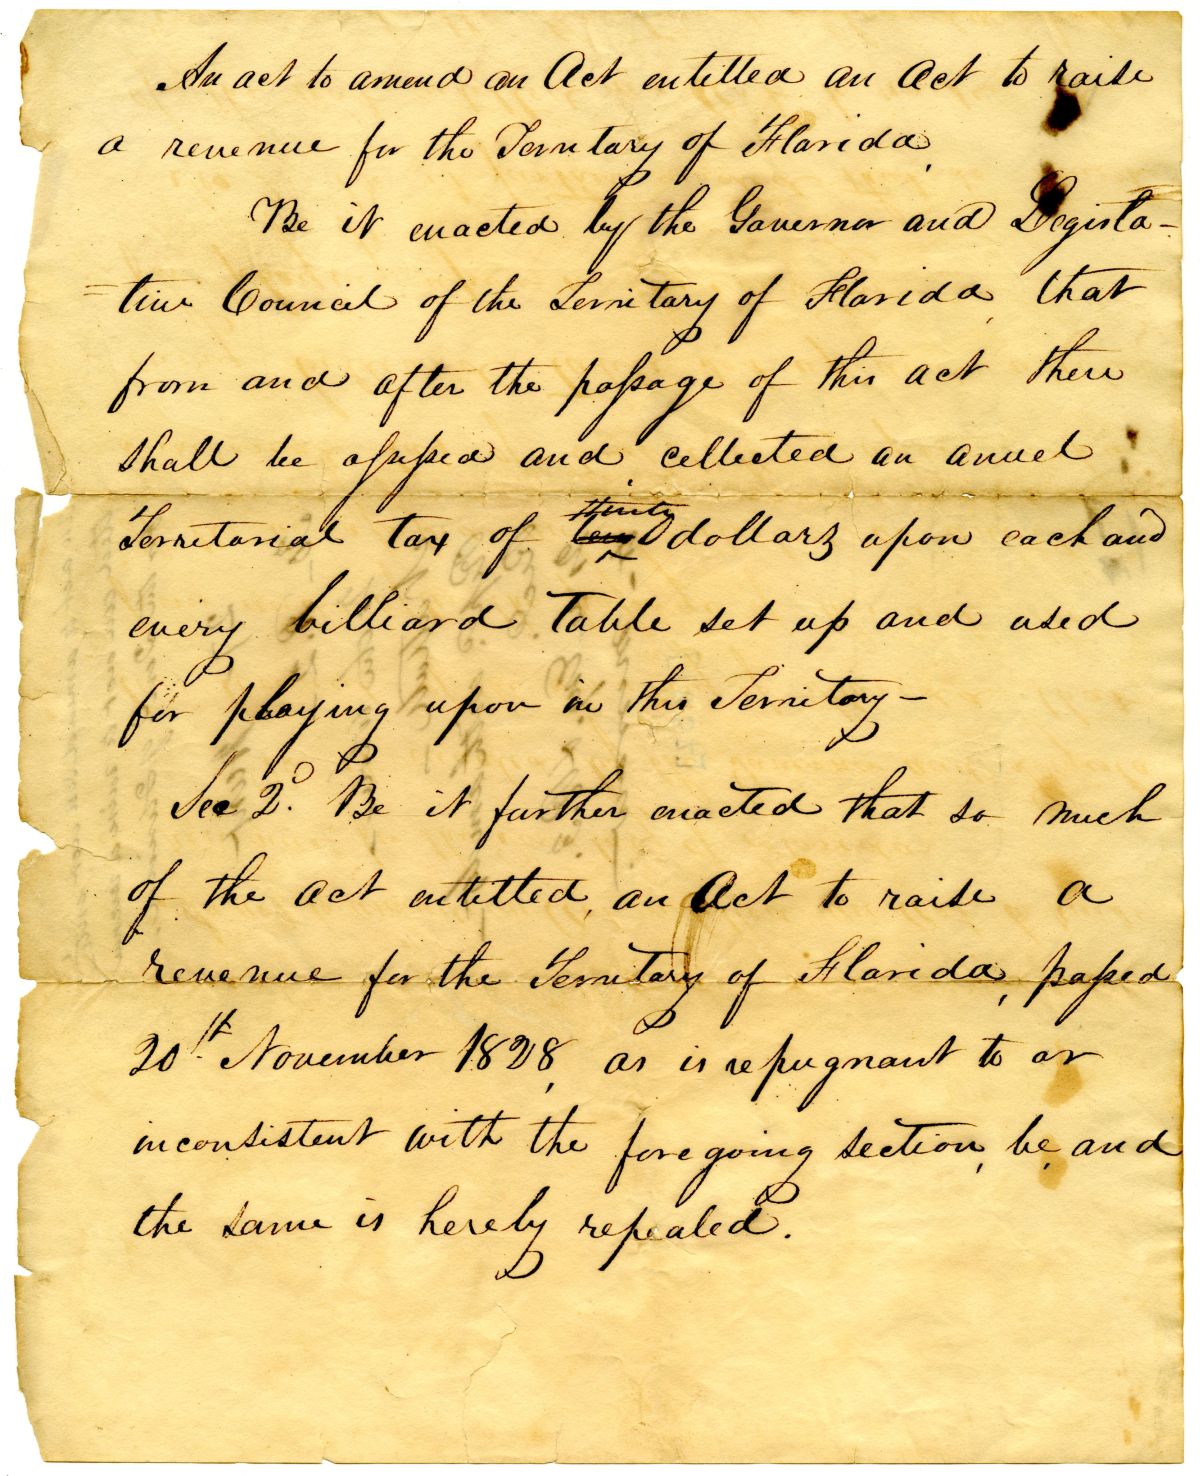 An act to amend an Act entitled an Act to raise
a revenue for the Territory of Florida,
Be it enacted by the Governor and Legisla-
=tive Council of the Territory of Florida, that
from and after the passage of this act there
shall be assessed and cellected an anuel
thirty
Territorial tax of ten dollars upon each and
every billiard table set up and used
for playing upon in this Territory-
Sec 2d. Be it further enacted that so much
of the act entitled, an Act to raise a
revenue for the Territory of Florida, passed
20th November 1828, as is repugnant to or
inconsistent with the foregoing section, be, and
the same is hereby repealed.